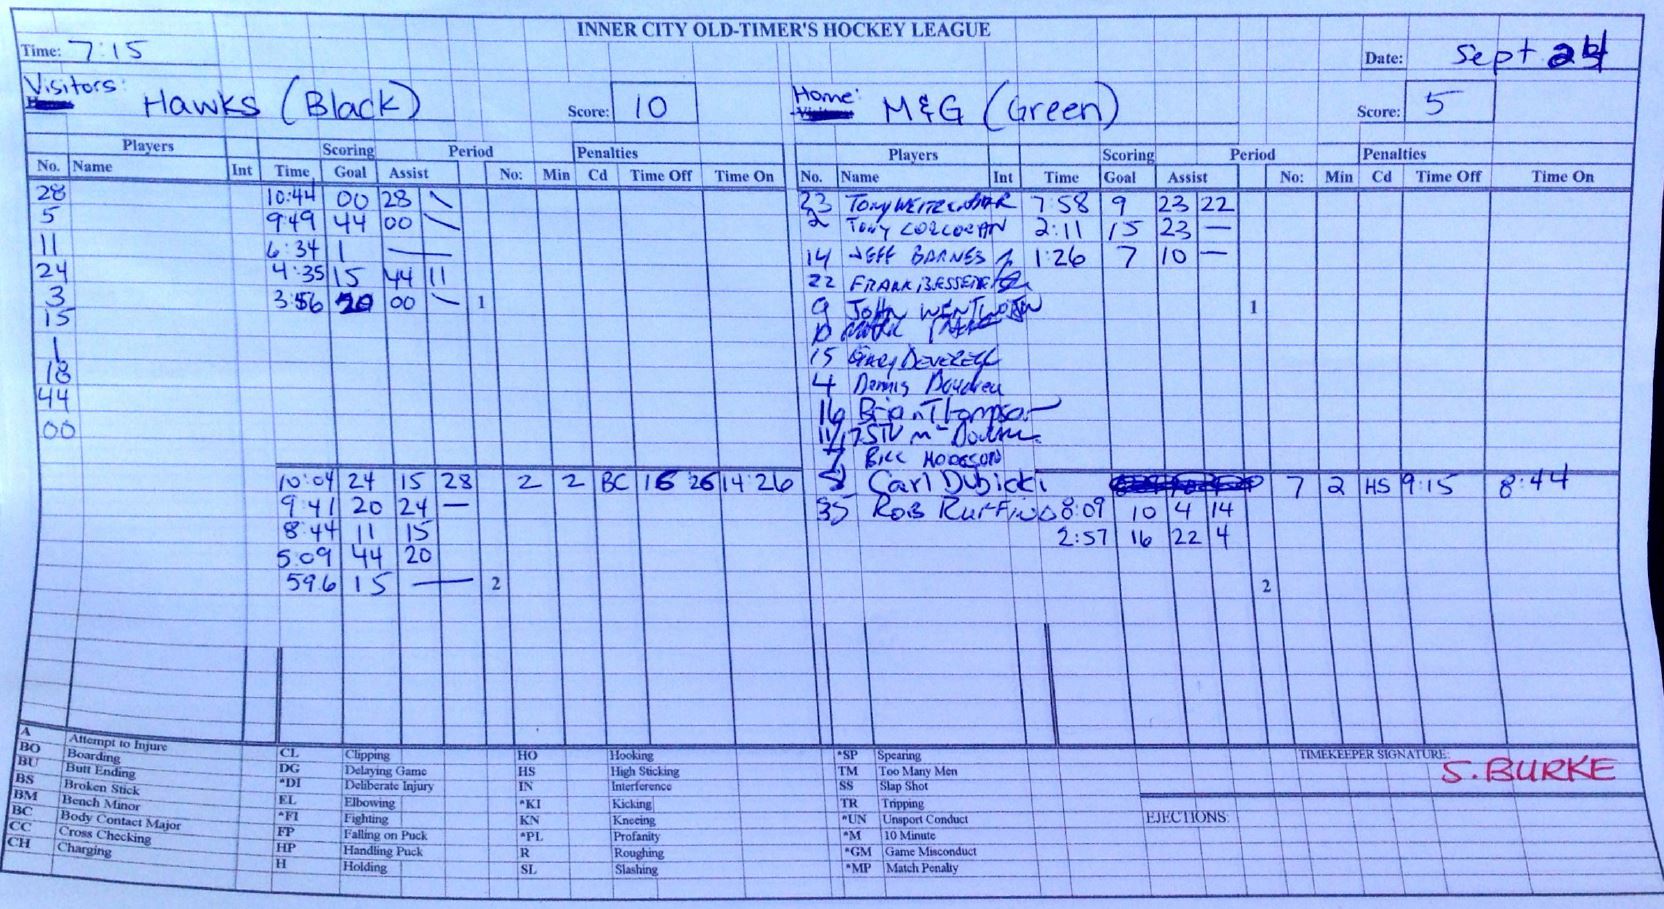 INNER CITY OLD-TIMER'S HOCKEY LEAGUE
Time: 7:15 Date: Sept 24
Visitors: Hawks (Black) Score: 10 Home: M&G (Green) Score: 5
Players Scoring Period Penalties Players Scoring Period Penalties
No. Name Int Time Goal Assist No: Min Cd Time Off Time On No. Name Int Time Goal Assist No: Min Cd Time Off Time On
28 10:44 00 28 \ 23 Tony 7:58 9 23 22
5 9:49 44 00 \ 2 Tony CORCORAN 2:11 15 23 —
11 6:34 1 — 14 JEFF BARNES 1:26 7 10 —
24 4:35 15 44 11 22 FRANK
3 3:56 20 00 \ 1 9 JOHN WENTWORTH 1
15 10
1 15 Gary DEVERELL
18 4 Dennis
44 16 Brian Thompson
00 11/17 STU
7 BILL HODGSON
10:04 24 15 28 2 2 BC 16 26 14:26 Carl Dubicki 7 2 HS 9:15 8:44
9:41 20 24 — 35 ROB RUFFINO 8:09 10 4 14
8:44 11 15 2:57 16 22 4
5:09 44 20
59.6 15 — 2 2
A Attempt to Injure CL Clipping HO Hooking *SP Spearing TIMEKEEPER SIGNATURE: S. BURKE
BO Boarding DG Delaying Game HS High Sticking TM Too Many Men
BU Butt Ending *DI Deliberate Injury IN Interference SS Slap Shot
BS Broken Stick EL Elbowing *KI Kicking TR Tripping
BM Bench Minor *FI Fighting KN Kneeing *UN Unsport Conduct EJECTIONS:
BC Body Contact Major FP Falling on Puck *PL Profanity *M 10 Minute
CC Cross Checking HP Handling Puck R Roughing *GM Game Misconduct
CH Charging H Holding SL Slashing *MP Match Penalty